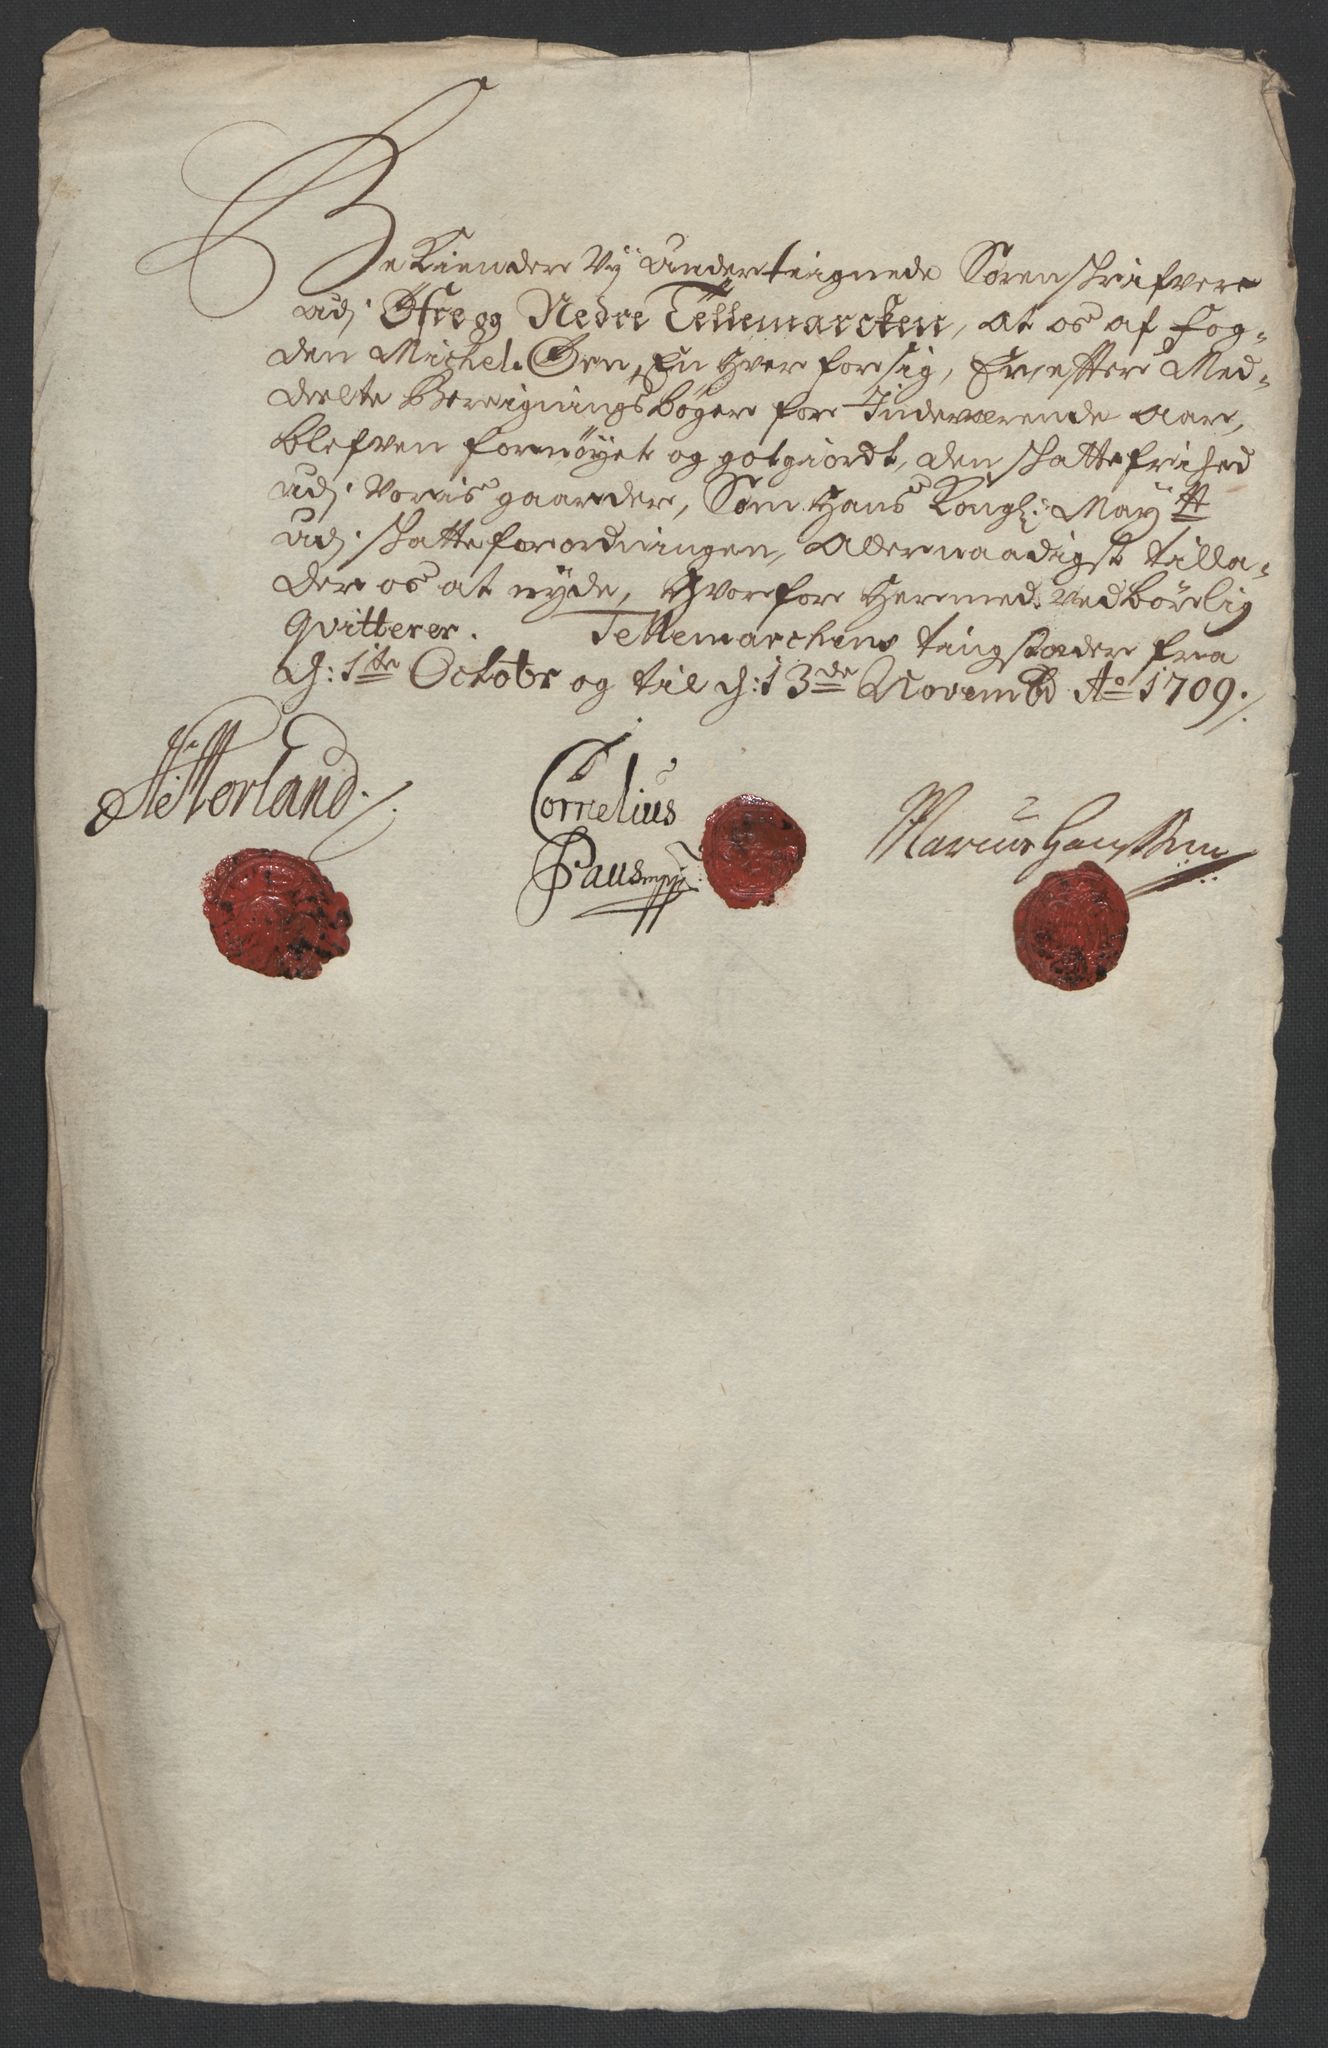 Bekiender Vy underteignede Sørenskrifvere
udj Øfre og Nedre Tellemarcken, at os af Fog-
den Michel Ørn, En hver for sig, Er efter Med-
deelte Bereignings bøger for Indeværende Aar,
blefven fornøyet og gotgiordt, den skattefrihed
udj voris gaarder, Som Hans Kongl: May.tt
udj skatteforordningen, Allernaadigst tilla-
der os at nyde, Hvorfore Hermed vedbørlig
Qvitterer. Tellemarchens tingstæder fra
d: 1ste Octobr og til d: 13de Novembr Ao 1709.
Nerland.
Cornelius
Paus mpp
Marcus Hanssen